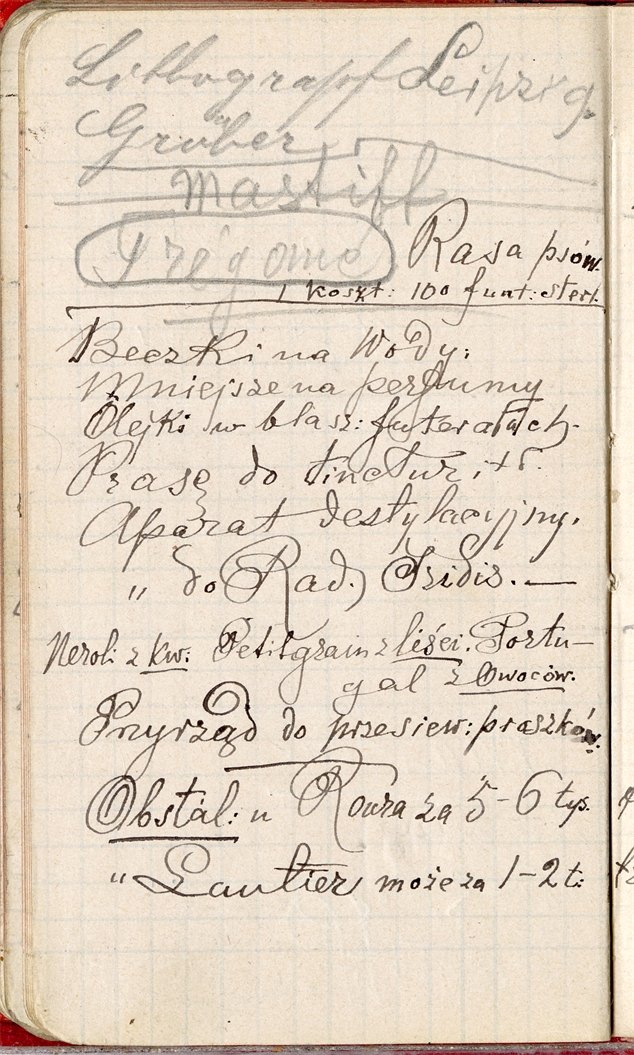 Lithograph Leipzig.
Gröber
Mastiff
Trégome Rasa psów.
1 koszt: 100 funt: sterl.
Beczki na Wody:
Mniejsze na perfumy
Olejki w blasz: futerałach.
Prasę do tinctur, itd.
Aparat destylacyjny.
„ do Rad. Iridis. —
Neroli z kw. Petitgrain z liści. Portu-
gal z Owoców.
Przyrząd do przesiew: proszków.
Obstal: u Roura za 5-6 tys.
„ Lautier może za 1-2 t: